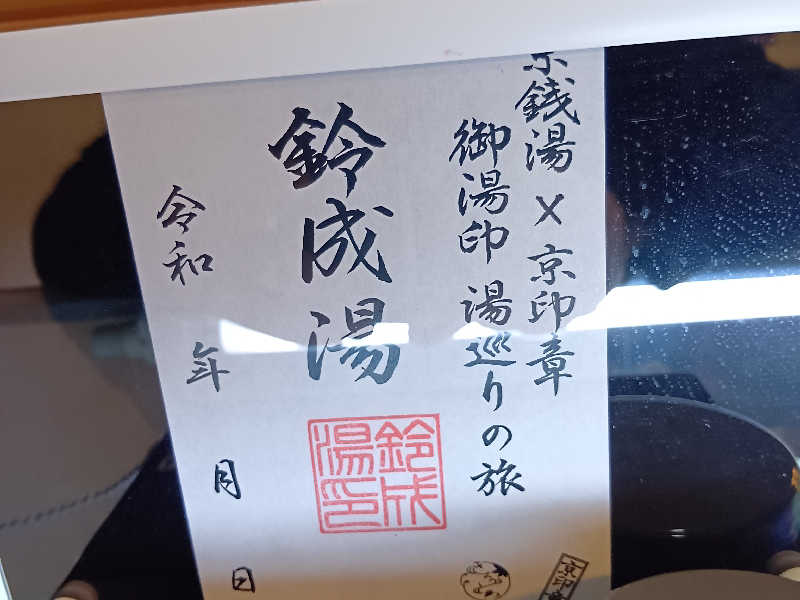 京銭湯×京印章
御湯印 湯巡りの旅
鈴成湯
鈴成
湯印
令和 年 月 日
京印